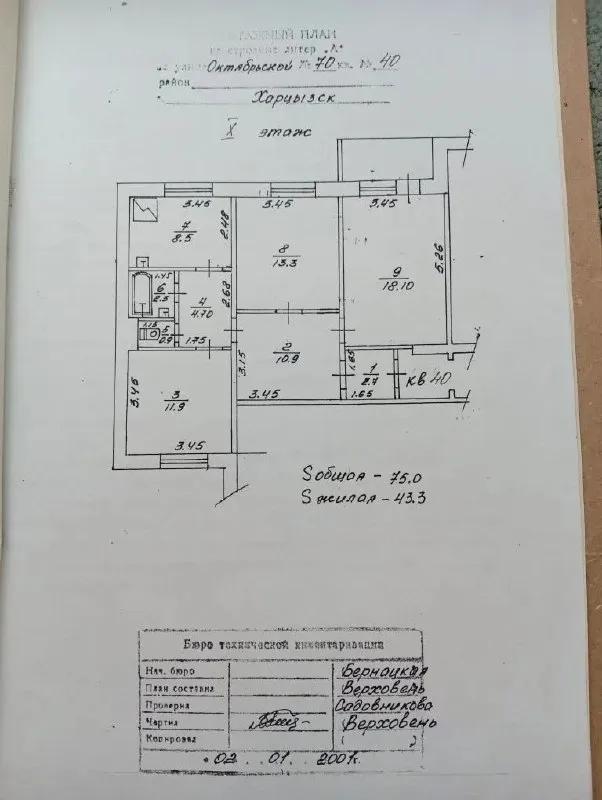 ЭТАЖНЫЙ ПЛАН
на строение литер „А"
по улице Октябрьской № 70 кв. № 40
район
Харцызск
X этаж
3.45 3.45 3.45
7
8.5
2.48
8
13.3
9
18.10
5.26
1.45
6
2.5
4
4.70
2.68
1.15
5
0.9
1.75
3.15
2
10.9
1.65
1
2.7
кв 40
3.45
3
11.9
3.45
1.65
3.45
S общая - 75.0
S жилая - 43.3
Бюро технической инвентаризации
Нач. бюро Бернацкая
План составил Верховень
Проверил Садовникова
Чертил Верховень
Копировал ( )
"02 . 01 . 2001г.